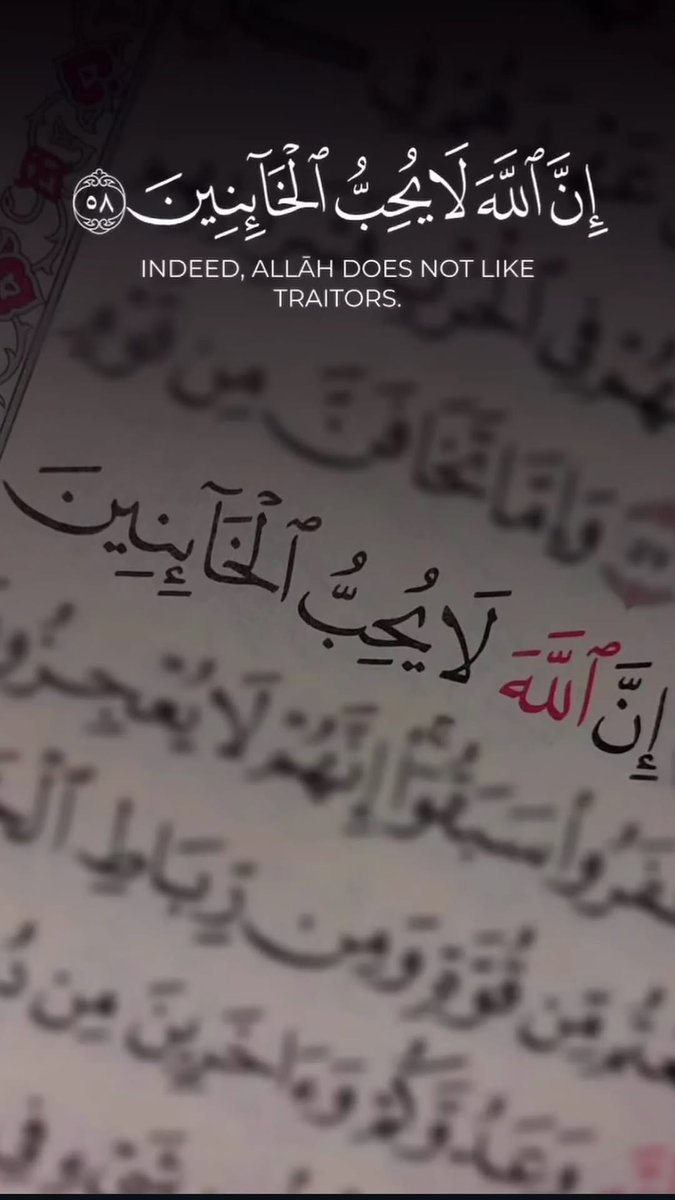 إِنَّ ٱللَّهَ لَا يُحِبُّ ٱلْخَآئِنِينَ ٥٨
INDEED, ALLĀH DOES NOT LIKE
TRAITORS.
وَإِمَّا تَخَافَنَّ مِن قَوْمٍ
إِنَّ ٱللَّهَ لَا يُحِبُّ ٱلْخَآئِنِينَ
كَفَرُوا۟ سَبَقُوٓا۟ إِنَّهُمْ لَا يُعْجِزُونَ
مِّن قُوَّةٍ وَمِن رِّبَاطِ
وَعَدُوَّكُمْ وَءَاخَرِينَ مِن